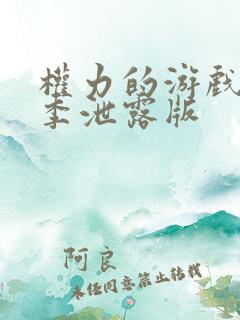 權力的游戏
季泄露版
阿良
未经同意禁止转载